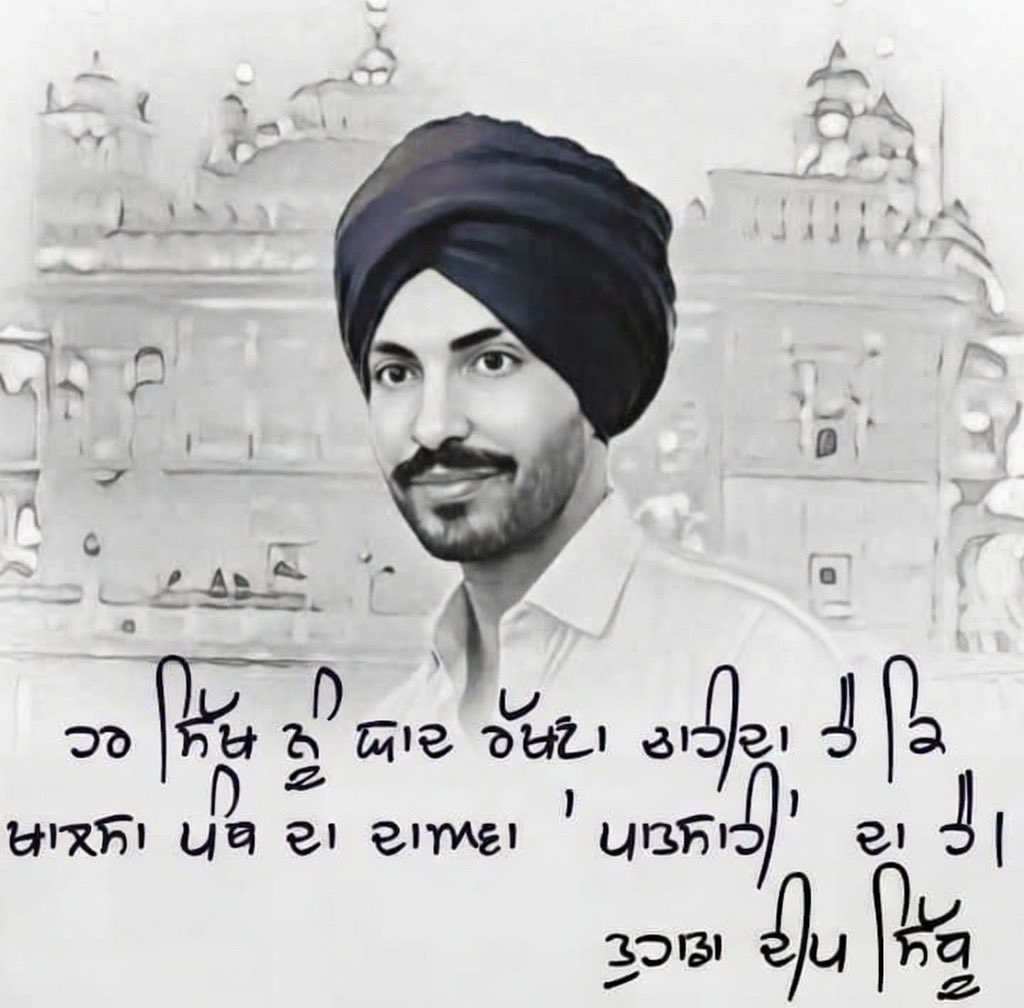 ਹਰ ਸਿੱਖ ਨੂੰ ਯਾਦ ਰੱਖਣਾ ਚਾਹੀਦਾ ਹੈ ਕਿ
ਖਾਲਸਾ ਪੰਥ ਦਾ ਦਾਅਵਾ 'ਪਾਤਸਾਹੀ' ਦਾ ਹੈ।
ਤੁਹਾਡਾ ਦੀਪ ਸਿੱਧੂ